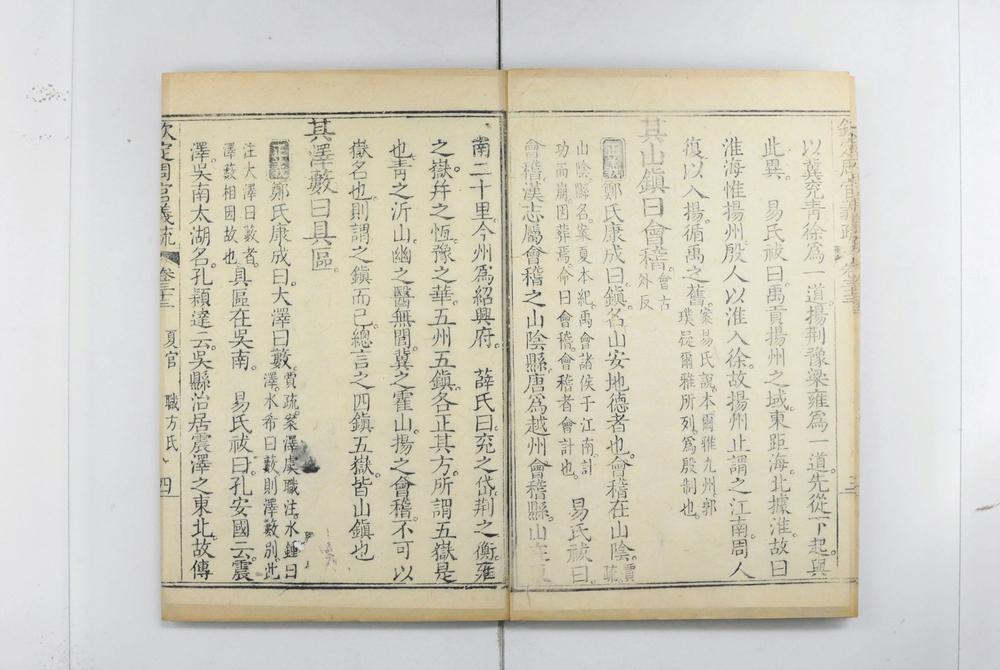 以冀兖青徐為一道。揚荆豫梁雍為一道。先從下起。與
此異。　易氏祓曰。禹貢揚州之域。東距海。北據淮。故曰
淮海惟揚州。殷人以淮入徐。故揚州止謂之江南。周人
復以入揚。循禹之舊。案易氏説。本爾雅九州。郭
璞疑爾雅所列。為殷制也。
其山鎮曰會稽。會古
外反
正義鄭氏康成曰。鎮。名山安地德者也。會稽在山陰。賈
疏。
山陰縣名。案夏本紀。禹會諸侯于江南。計
功而崩。因葬焉。命曰會稽。會稽者。會計也。　易氏祓曰。
會稽漢志屬會稽之山陰縣。唐為越州會稽縣。山在
南二十里。今州為紹興府。　薛氏曰。兖之岱。荆之衡。雍
之嶽。幷之恆。豫之華。五州五鎮。各正其方。所謂五嶽是
也。青之沂山。幽之醫無閭。冀之霍山。揚之會稽。不可以
嶽名也。則謂之鎮而已。總言之。四鎮五嶽。皆山鎮也
其澤藪曰具區。
正義鄭氏康成曰。大澤曰藪。賈疏。案澤虞職注。水鍾曰
澤。水希曰藪。則澤藪别。此
注大澤曰藪者。
澤藪相因故也。具區在吳南。　易氏祓曰。孔安國云。震
澤。吳南太湖名。孔穎達云。吳縣治居震澤之東北。故傳
欽定周官義疏　卷三十三　夏官　職方氏　四